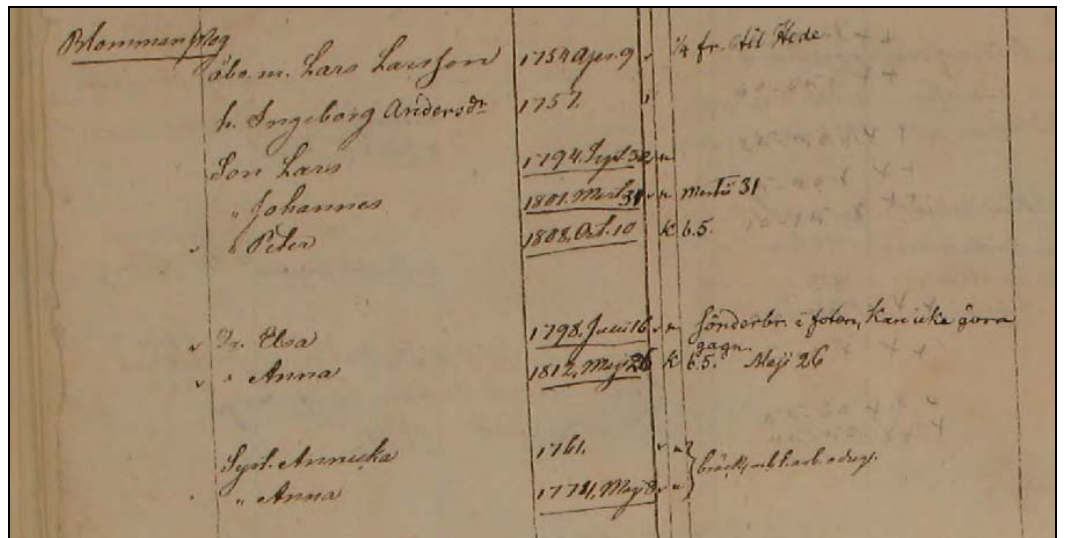 Blommanskog
åbo. m. Lars Larsson 1754 Apr. 9 1/4 fr. til Hede
h. Ingeborg Andersdr 1757.
Son Lars 1794. Sept. 30
" Johannes 1801. Mart. 31 Martii 31
" Peter 1808. Oct. 10 k b.5.
Dr. Elsa 1798. Junii 16 Sönderbr. i foten, kan icke göra
gagn.
" Anna 1812. Maji 26 k b.5. Maji 26
Syst. Annicka 1761.
" Anna 1771. Maji bräck.